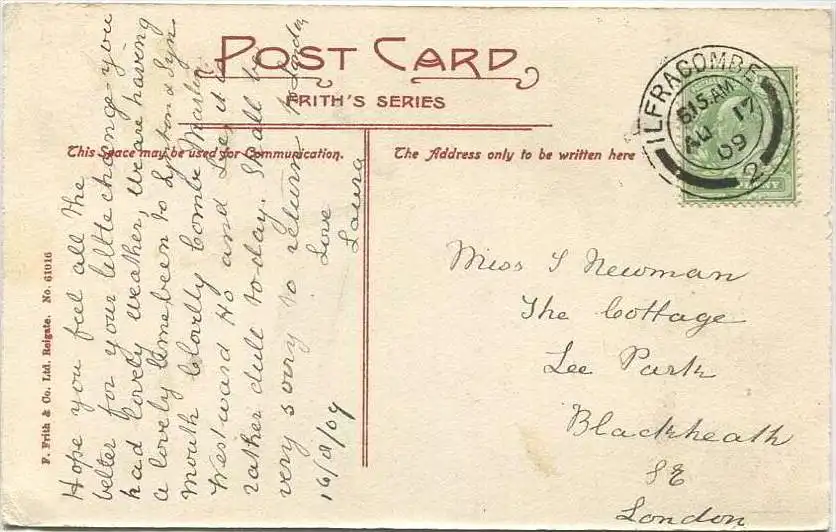 POST CARD
FRITH'S SERIES
This Space may be used for Communication.
The Address only to be written here
ILFRACOMBE
6.15 AM
AU 17
09
2
Hope you feel all the
better for your little change you
had lovely weather, we are having
a lovely time been to Lynton & Lyn
mouth Clovelly Combe Martin
Westward Ho and Lee, it is
rather dull to-day. Shall be
very sorry to return to London
Love
Laura
16/8/09
Miss S Newman
The Cottage
Lee Park
Blackheath
SE
London
F. Frith & Co. Ltd. Reigate. No. 61016